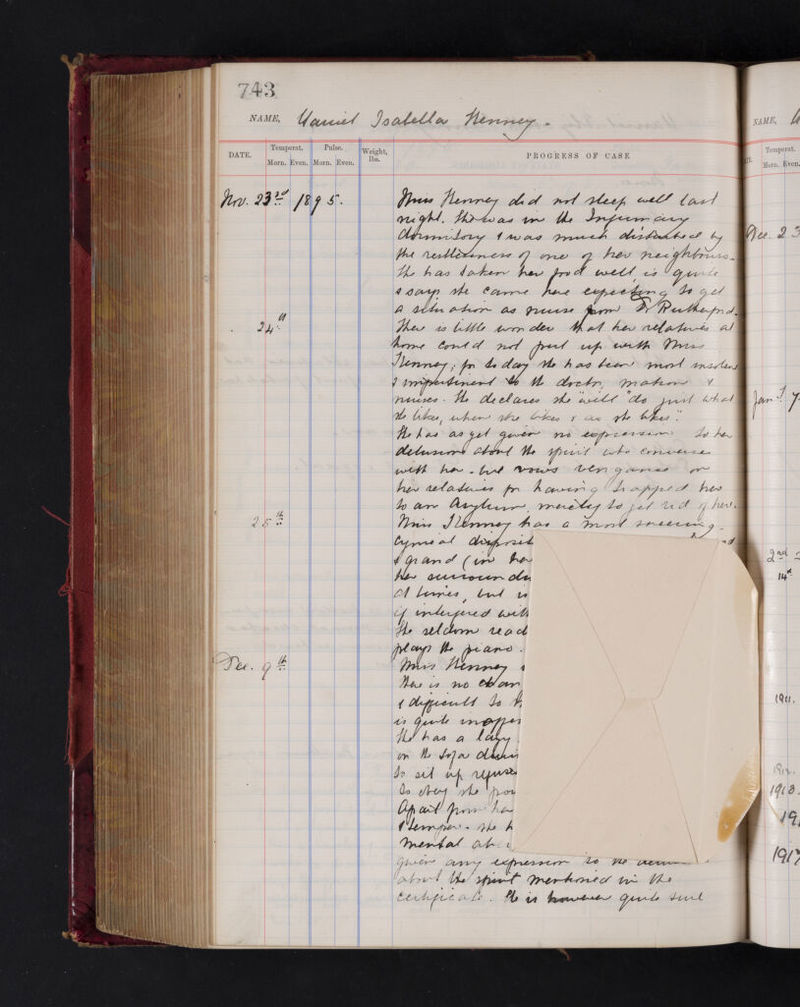 743
NAME, Harriet Isabella Kenney.
DATE. Temperat. Pulse. Weight, lbs. PROGRESS OF CASE
Morn. Even. Morn. Even.
Nov. 23rd 1895. Miss Kenney did not sleep well last
night. She was in the Infirmary
dormitory & was much disturbed by
the restlessness of one of her neighbours.
She has taken her food well is quite
& says she came here expecting to get
a situation as nurse from Dr Rutherford.
24th There is little wonder that her relatives at
home could not put up with Miss
Kenney; for to day she has been most insolent
& impertinent to the doctor, matron &
nurses. She declares she "will "do just what
she likes, when she likes & as she likes".
She has as yet given no expression to her
delusions about the spirit who converses
with her - but vows vengeance on
her relatives for having trapped her
to an Asylum, merely to get rid of her.
25th Miss Kenney has a most sneering
cynical disposit
& grand (in her
her
at times, but is
if interfered with
She seldom read
plays the piano.
Dec. 9th Miss Kenney
there is no chan
& difficult to
is quite
She has a lazy
on the sofa
to sit up refuse
to obey she
Apart from her
& temper - she h
mental
given any expression to
about the spirit mentioned in the
certificate. She is however quite
NAME,
Temperat.
Morn. Even.
Dec. 23
Jan. 7
2nd
14th
1911.
1913.